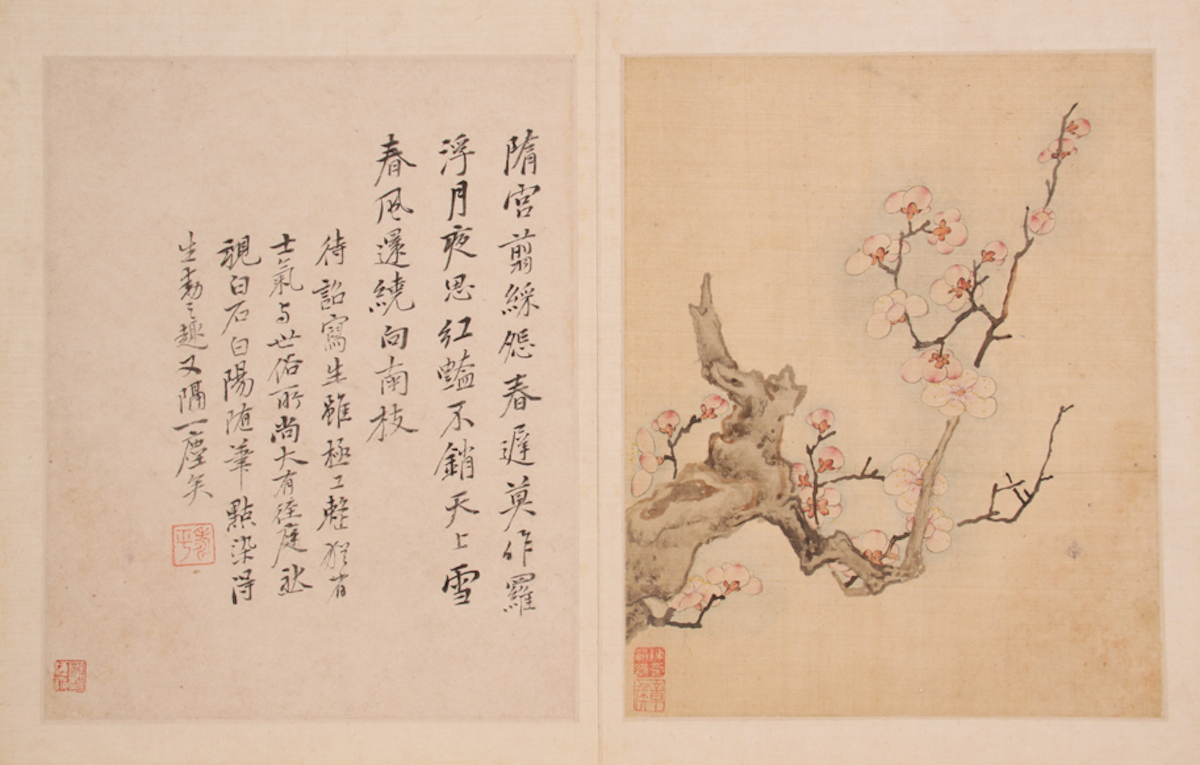 隋宮翦綵怨春遲莫作羅
浮月夜思紅豔不銷天上雪
春風還繞向南枝
待詔寫生雖極工麗猶有
士氣与世俗所尚大有徑庭然
視白石白陽随筆點染得
生動之趣又隔一塵矣